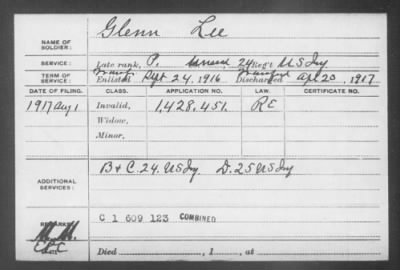 NAME OF SOLDIER: Glenn Lee
SERVICE: Late rank, P. 24 Reg't U S Inf
TERM OF SERVICE: Enlisted Sept 24, 1916 Discharged Apr 20, 1917
DATE OF FILING. CLASS. APPLICATION NO. LAW. CERTIFICATE NO.
1917 Aug 1 Invalid, 1,428,451. RE
Widow,
Minor,
ADDITIONAL SERVICES: B & C. 24. U S Inf D. 25 U S Inf
REMARKS: C 1 609 123 COMBINED
Died , 1 , at